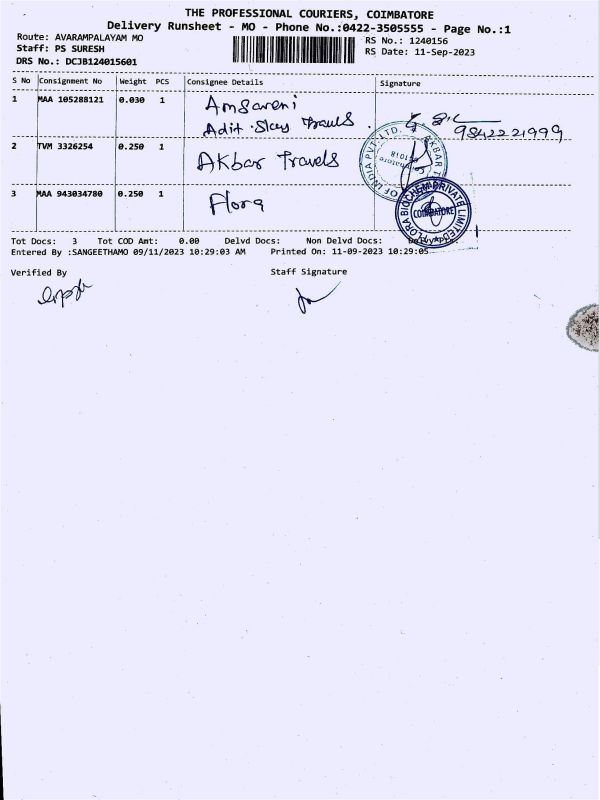 THE PROFESSIONAL COURIERS, COIMBATORE
Delivery Runsheet - MO - Phone No.:0422-3505555 - Page No.:1
Route: AVARAMPALAYAM MO
RS No.: 1240156
Staff: PS SURESH
RS Date: 11-Sep-2023
DRS No.: DCJB124015601
S No Consignment No Weight PCS Consignee Details Signature
1 MAA 105288121 0.030 1
Travels
9842221999
2 TVM 3326254 0.250 1 Akbar Travels
3 MAA 943034780 0.250 1 Flora
FLORA BIOCHEM PRIVATE LIMITED
COIMBATORE
Tot Docs: 3 Tot COD Amt: 0.00 Delvd Docs: Non Delvd Docs:
Entered By :SANGEETHAMO 09/11/2023 10:29:03 AM Printed On: 11-09-2023 10:29:05
Verified By Staff Signature